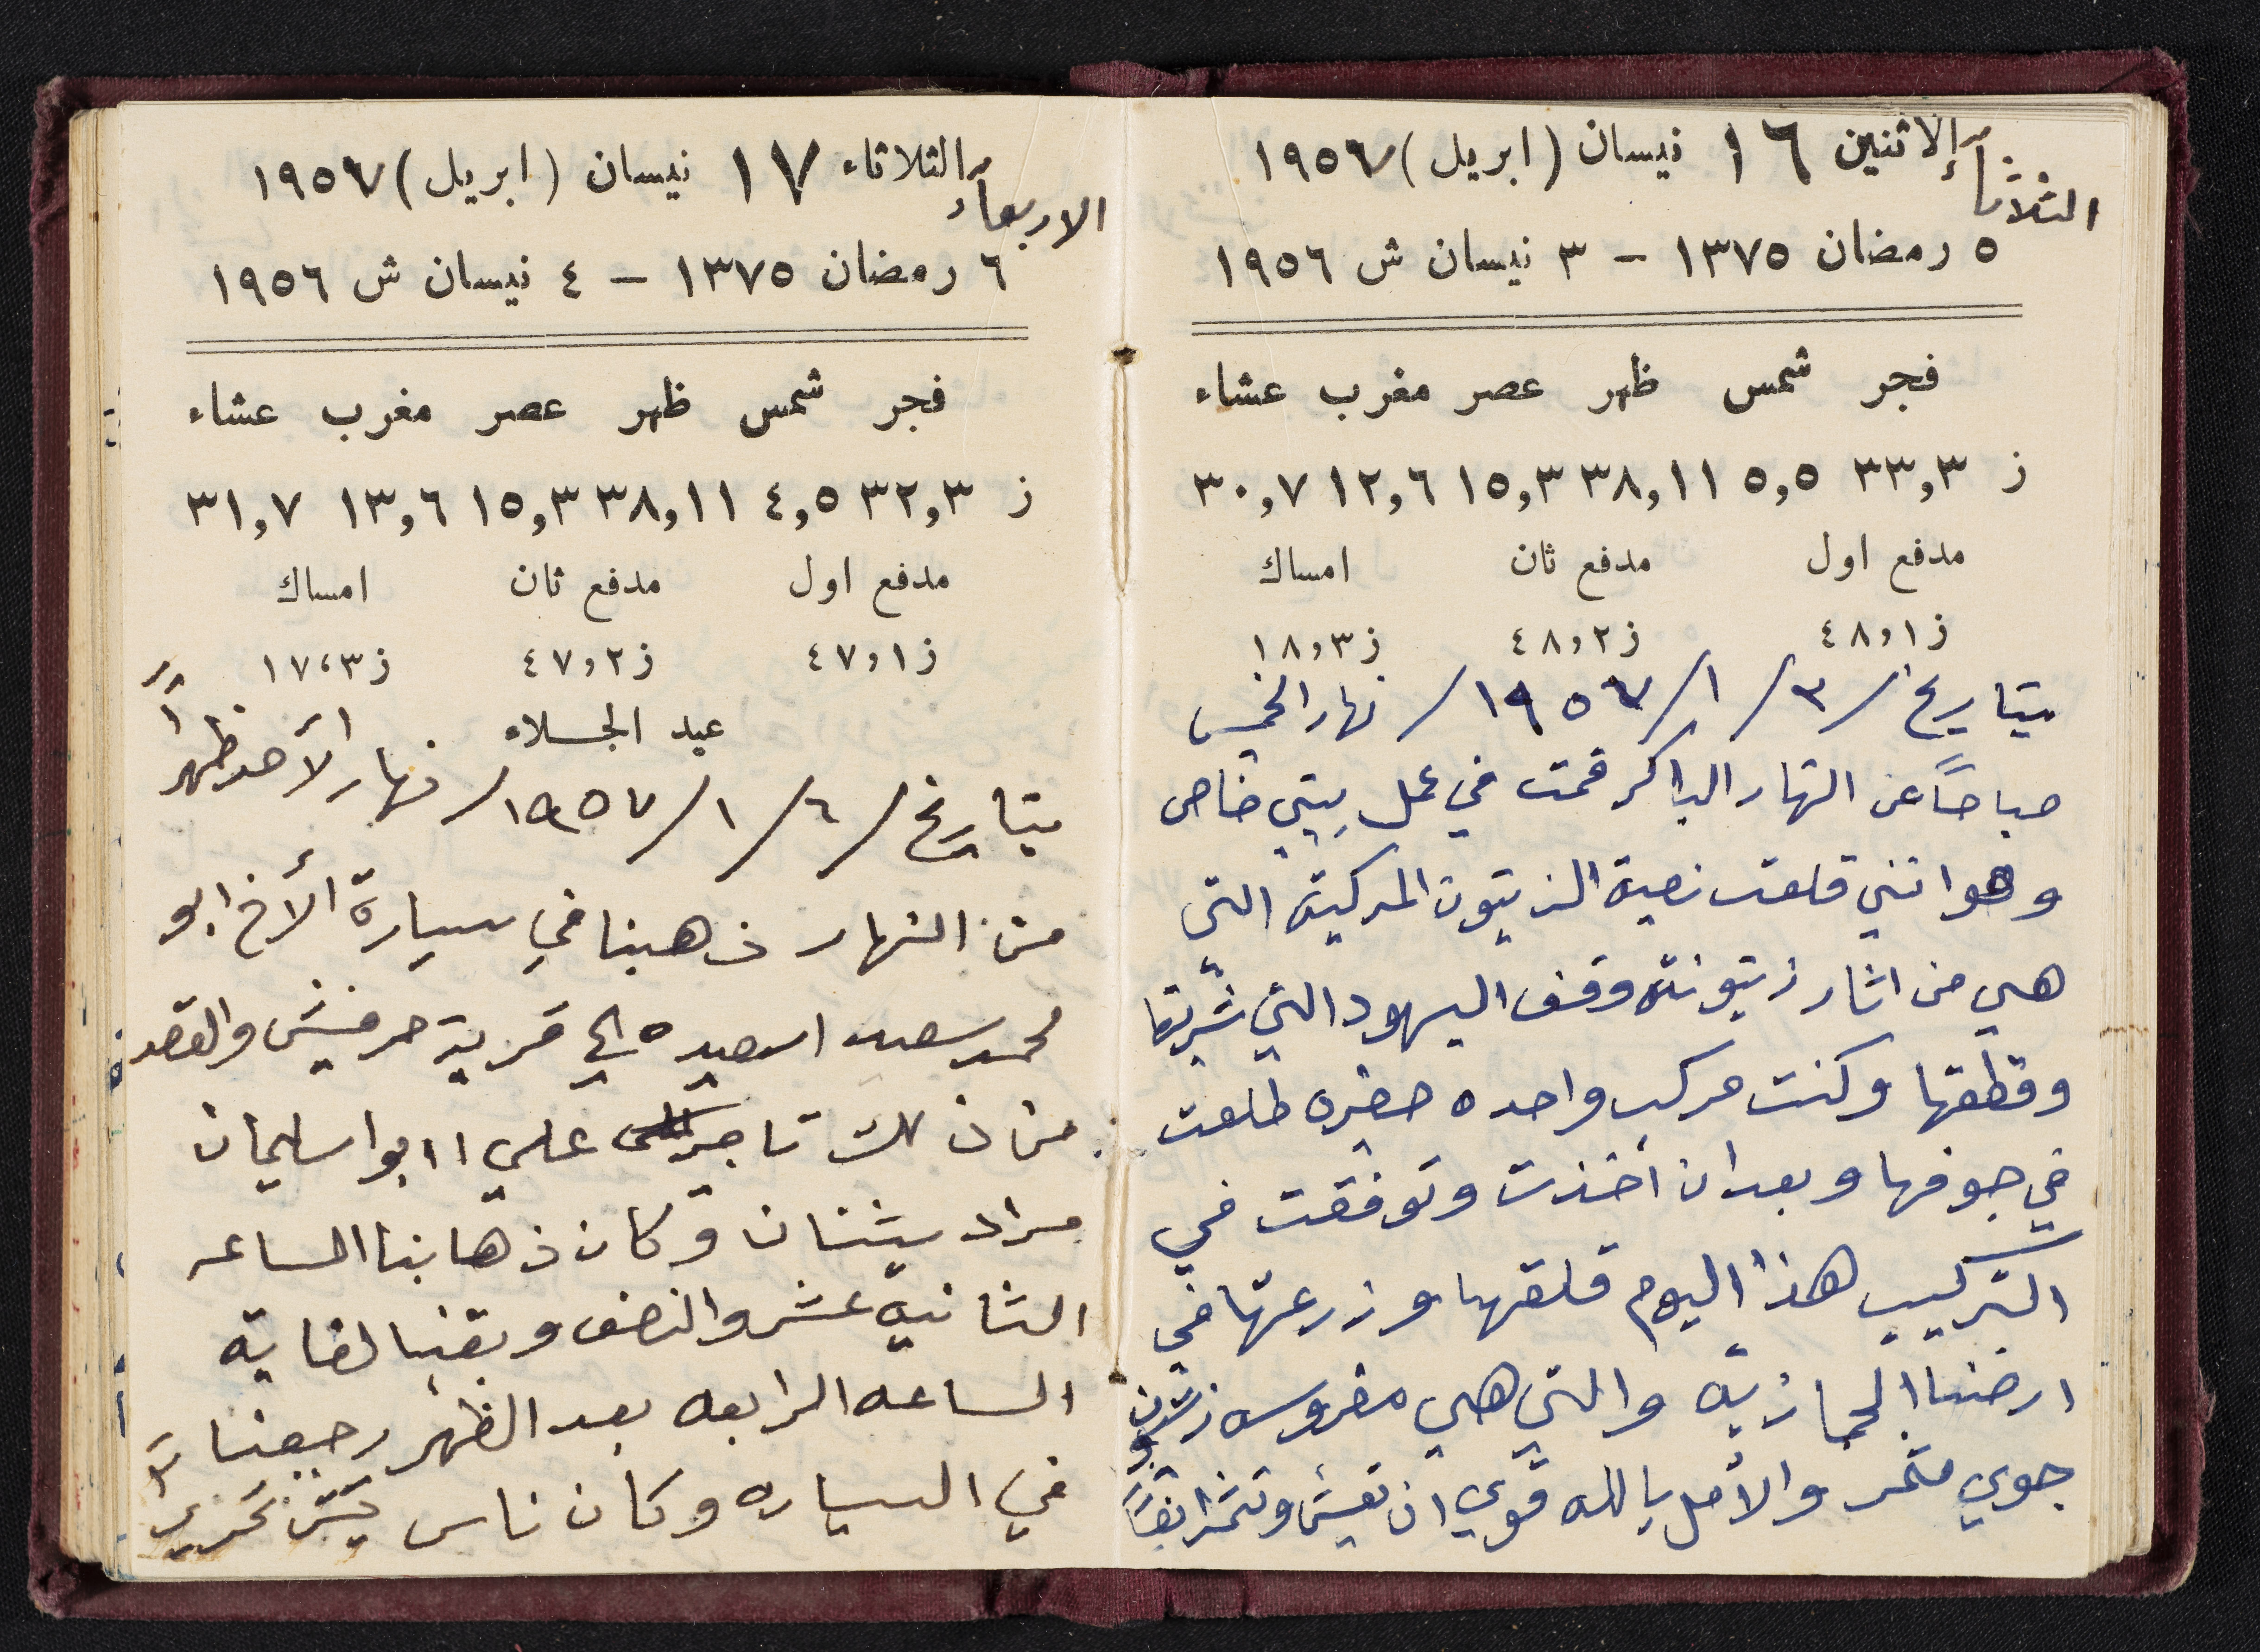 الاثنين ١٦ نيسان (ابريل) ١٩٥٧
الثلاثاء
٥ رمضان ١٣٧٥ - ٣ نيسان ش ١٩٥٦
فجر شمس ظهر عصر مغرب عشاء
ز ٣٣,٣ ٥,٥ ٣٨,١١ ١٥,٣ ١٢,٦ ٣٠,٧
مدفع اول مدفع ثان امساك
ز٤٨,١ ز٤٨,٢ ز١٨,٣
بتاريخ /٣/ ١/ ١٩٥٧/ نهار الخميس
صباحاً عن النهار الباكر قمت في عمل بيتي خاص
وهو انني قلعت نصبة الزيتون المركبة التي
هي من اثار زيتونة وقف اليهود التي شريتها
وقطعتها وكنت مركب واحده صغيره طلعت
في جوفها وبعد ان أخذت وتوفقت في
التركيب هذا اليوم قلعتها وزرعتها في
ارضنا الحجازية والتي هي مغروسه زيتون
جوي مثمر والأمل بالله قوي ان تعيش وتثمر ايضاً
الثلاثاء ١٧ نيسان (ابريل) ١٩٥٧
الاربعاء
٦ رمضان ١٣٧٥ - ٤ نيسان ش ١٩٥٦
فجر شمس ظهر عصر مغرب عشاء
ز ٣٢,٣ ٤,٥ ٣٨,١١ ١٥,٣ ١٣,٦ ٣١,٧
مدفع اول مدفع ثان امساك
ز٤٧,١ ز٤٧,٢ ز١٧,٣
عيد الجلاء
بتاريخ /٦/ ١/ ١٩٥٧/ نهار الأحد ظهراً
من النهار ذهبنا في سيارة الأخ ابو
محمد سعيد اسعيده الى قرية حرفيش والقصد
من ذلك تاجير علي ابو اسليمان
مراد بيثنان وكان ذهابنا الساعه
الثانيه عشر والنصف وبقنيا لغاية
الساعه الرابعه بعد الظهر رجعنا
في السياره وكان ناس